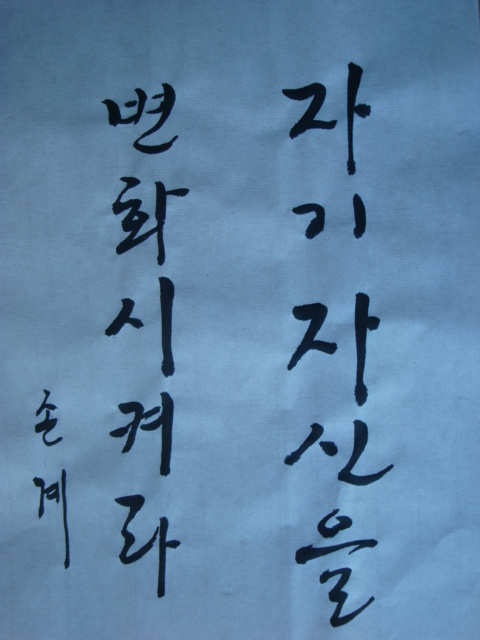 자기자신을
변화시켜라
손계